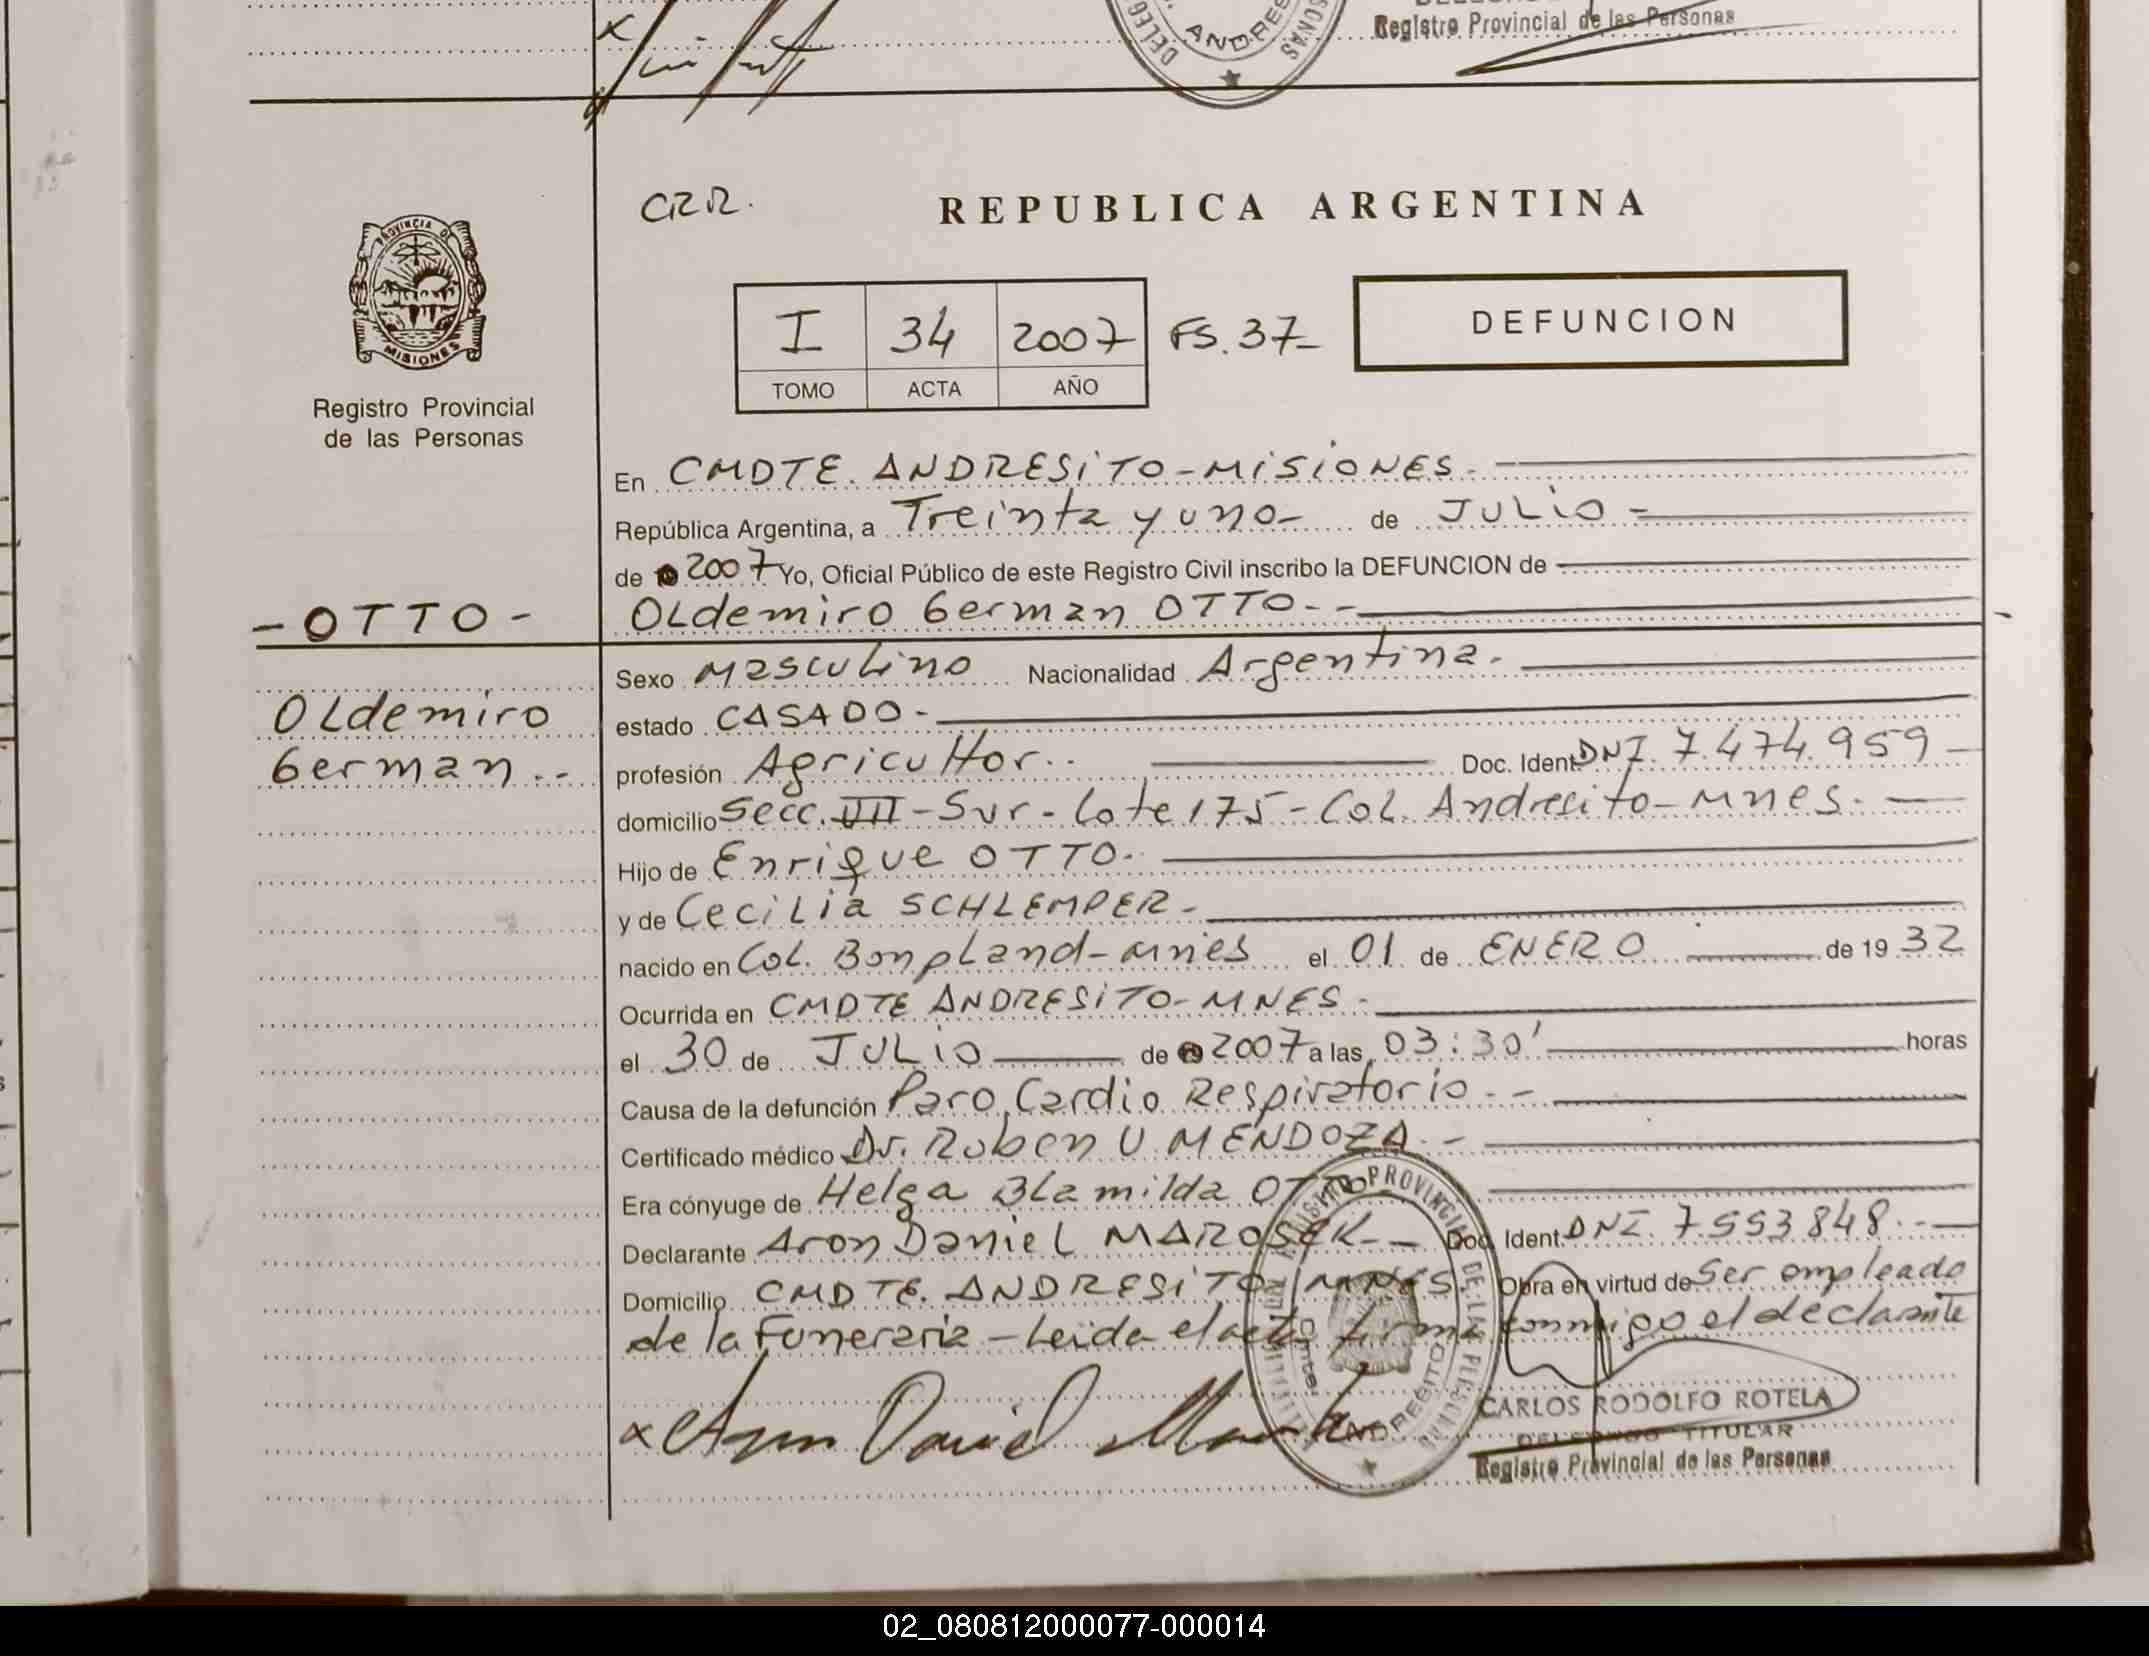 Registro Provincial de las Personas
ANDRES
CRR.
REPUBLICA ARGENTINA
PROVINCIA DE
MISIONES
Registro Provincial
de las Personas
I 34 2007 FS. 37-
TOMO ACTA AÑO
DEFUNCION
En CMDTE. ANDRESiTO-MiSiONES.
República Argentina, a Treinta y uno- de JULiO-
de 2007 Yo, Oficial Público de este Registro Civil inscribo la DEFUNCION de
-OTTO-
OLdemiro German OTTO.-
Sexo Masculino Nacionalidad Argentina.
OLdemiro
German..-
estado CASADO-
profesión Agricultor.. Doc. Ident. DNI. 7.474.959-
domicilio Secc. VII-Sur-Lote 175-Col. Andresito-Mnes.
Hijo de Enrique OTTO.
y de CeciLia SCHLEMPER-
nacido en Col. BonpLand-Mnes el 01 de ENERO de 19 32
Ocurrida en CMDTE ANDRESiTO-MNES.
el 30 de JULiO de 2007 a las 03:30' horas
Causa de la defunción Paro Cardio Respiratorio.-
Certificado médico Dr. Ruben U. MENDOZA.-
Era cónyuge de Helga BLamilda OTTO
Declarante Aron DanieL MAROSEK.- Doc. Ident. DNI. 7.553.848.-
Domicilio CMDTE. ANDRESiTO MNES. Obra en virtud de Ser empleado
de la Funeraria-Leida el acta firma conmigo el declarante
x Aron Daniel
CARLOS RODOLFO ROTELA
DELEGADO TITULAR
Registro Provincial de las Personas
REGISTRO PROVINCIAL DE LAS PERSONAS
ANDRESITO
02_080812000077-000014